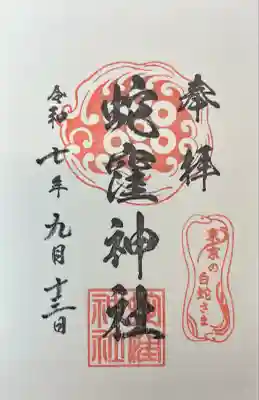 奉拝
蛇窪神社
令和七年九月十三日
東京の
白蛇さま